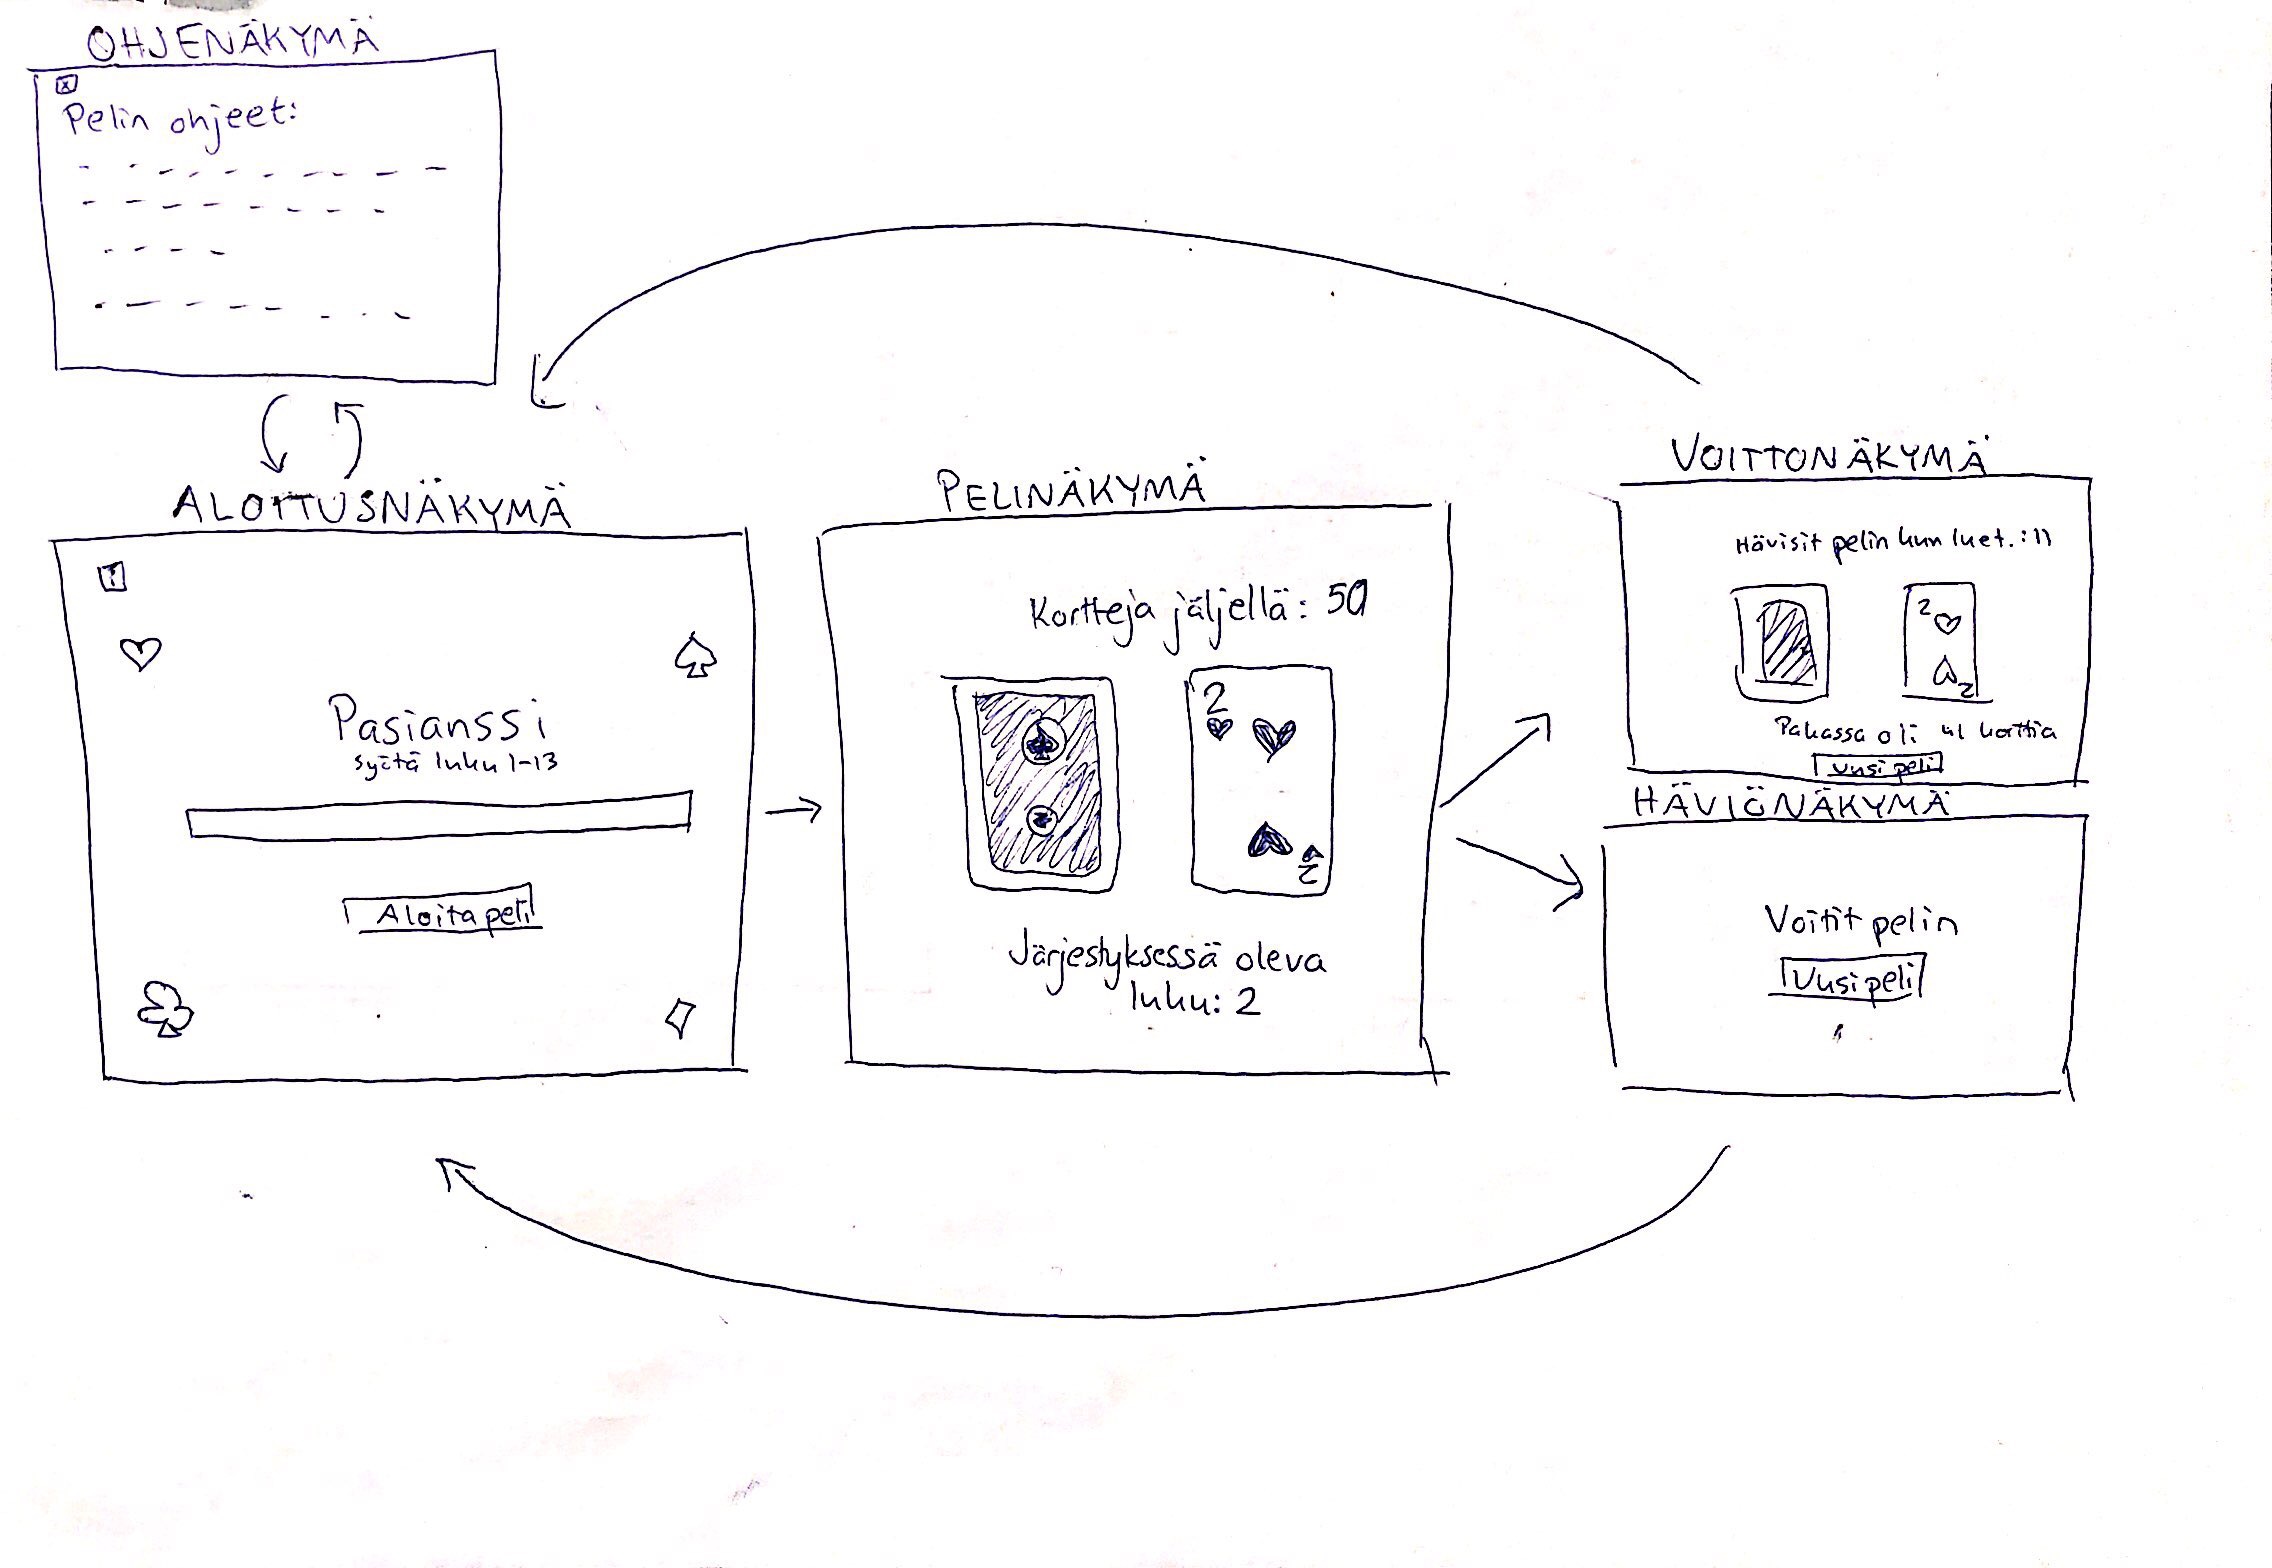 OHJENÄKYMÄ
x
Pelin ohjeet:
ALOITUSNÄKYMÄ
Pasianssi
syötä luku 1-13
Aloita peli
PELINÄKYMÄ
Kortteja jäljellä: 50
2
2
Järjestyksessä oleva
luku: 2
VOITTONÄKYMÄ
Hävisit pelin kun luet.: 11
2
2
Pakassa oli 41 korttia
Uusi peli
HÄVIÖNÄKYMÄ
Voitit pelin
Uusi peli